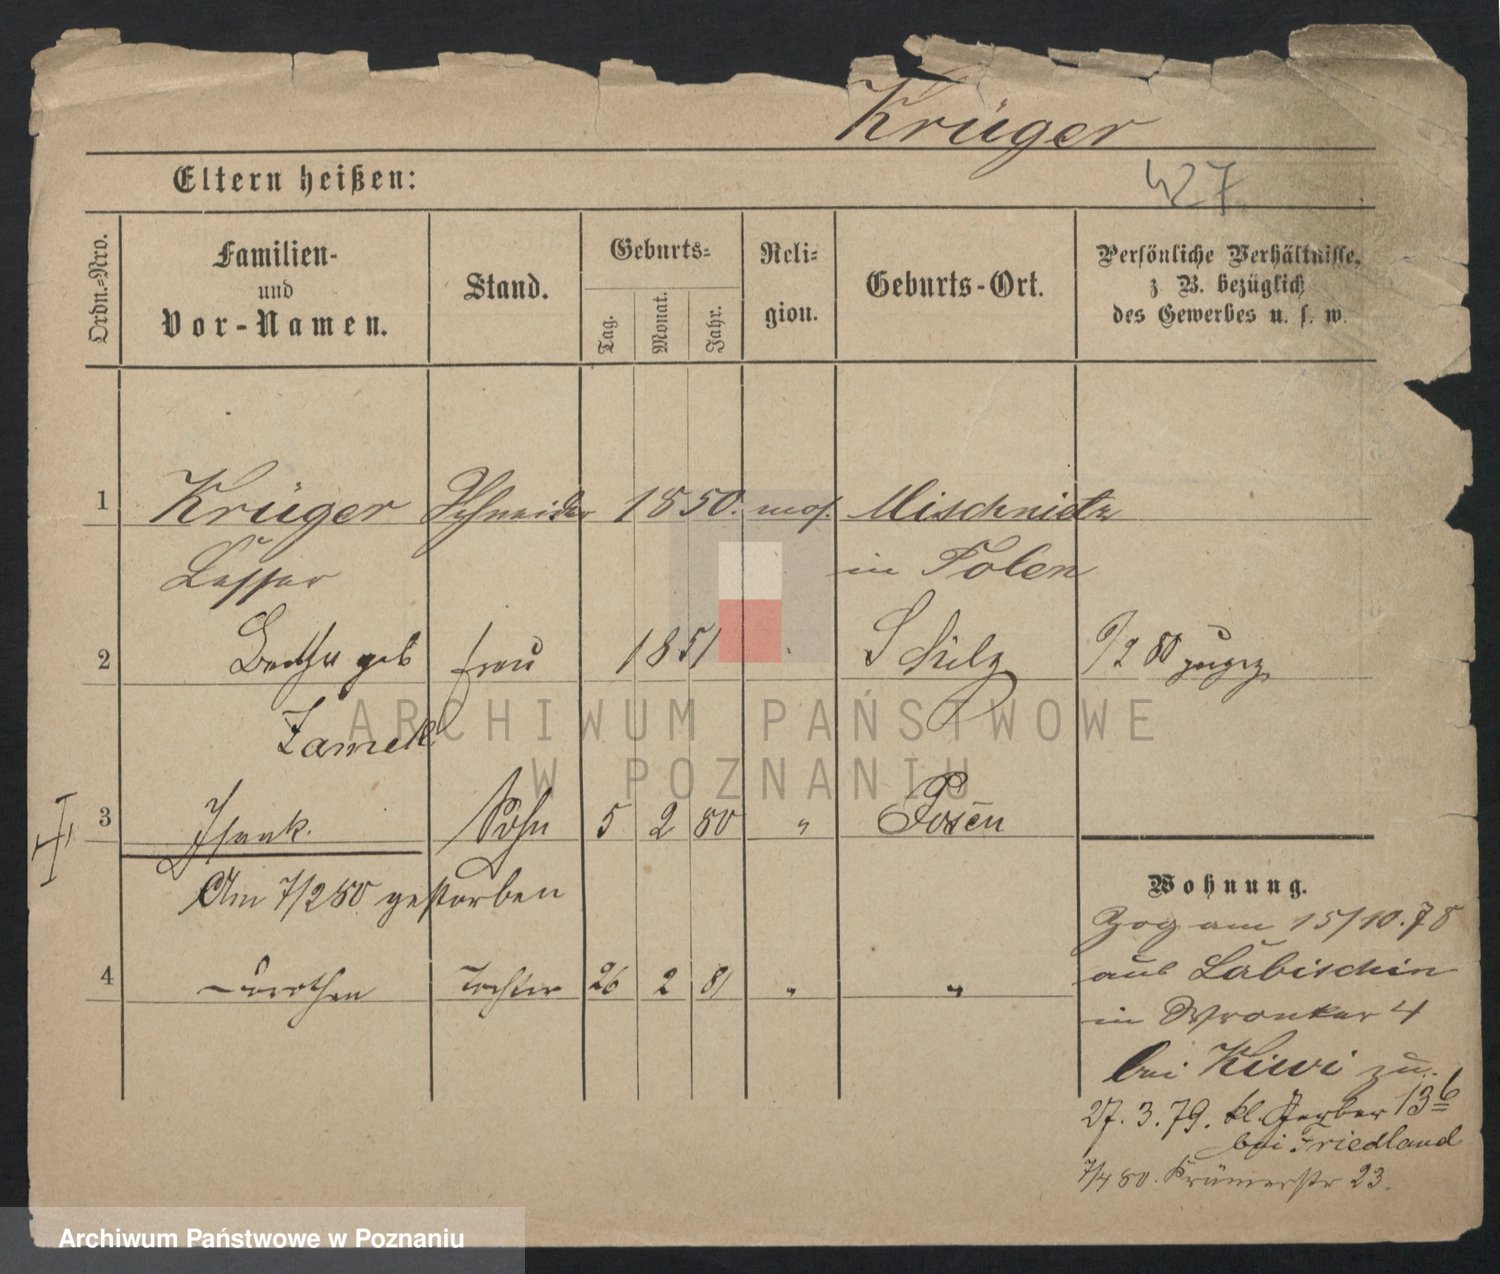 Krüger
427
Eltern heißen:
Ordn.-Nro.
Familien-
und
Vor-Namen.
Stand.
Geburts-
Tag.
Monat.
Jahr.
Reli-
gion.
Geburts-Ort.
Persönliche Verhältnisse,
z. B. bezüglich
des Gewerbes u. s. w.
1 Krüger Schneider 1850. mos. Mischnietz
Lesser in Polen
2 Bertha geb Frau 1851 Schulz /2 80 zugez
Zamek
3 Isaak. Sohn 5 2 80 " Posen
Am 7/2 80 gestorben
4 Dorothea Tochter 26 2 81 " "
Wohnung.
Zog am 15/10.78
aus Labischin
in Wronker 4
bei Kiwi zu.
27. 3. 79. kl. Gerber 13b
bei Friedland
7/4 80. Krämerstr 23.
ARCHIWUM PAŃSTWOWE
W POZNANIU
Archiwum Państwowe w Poznaniu